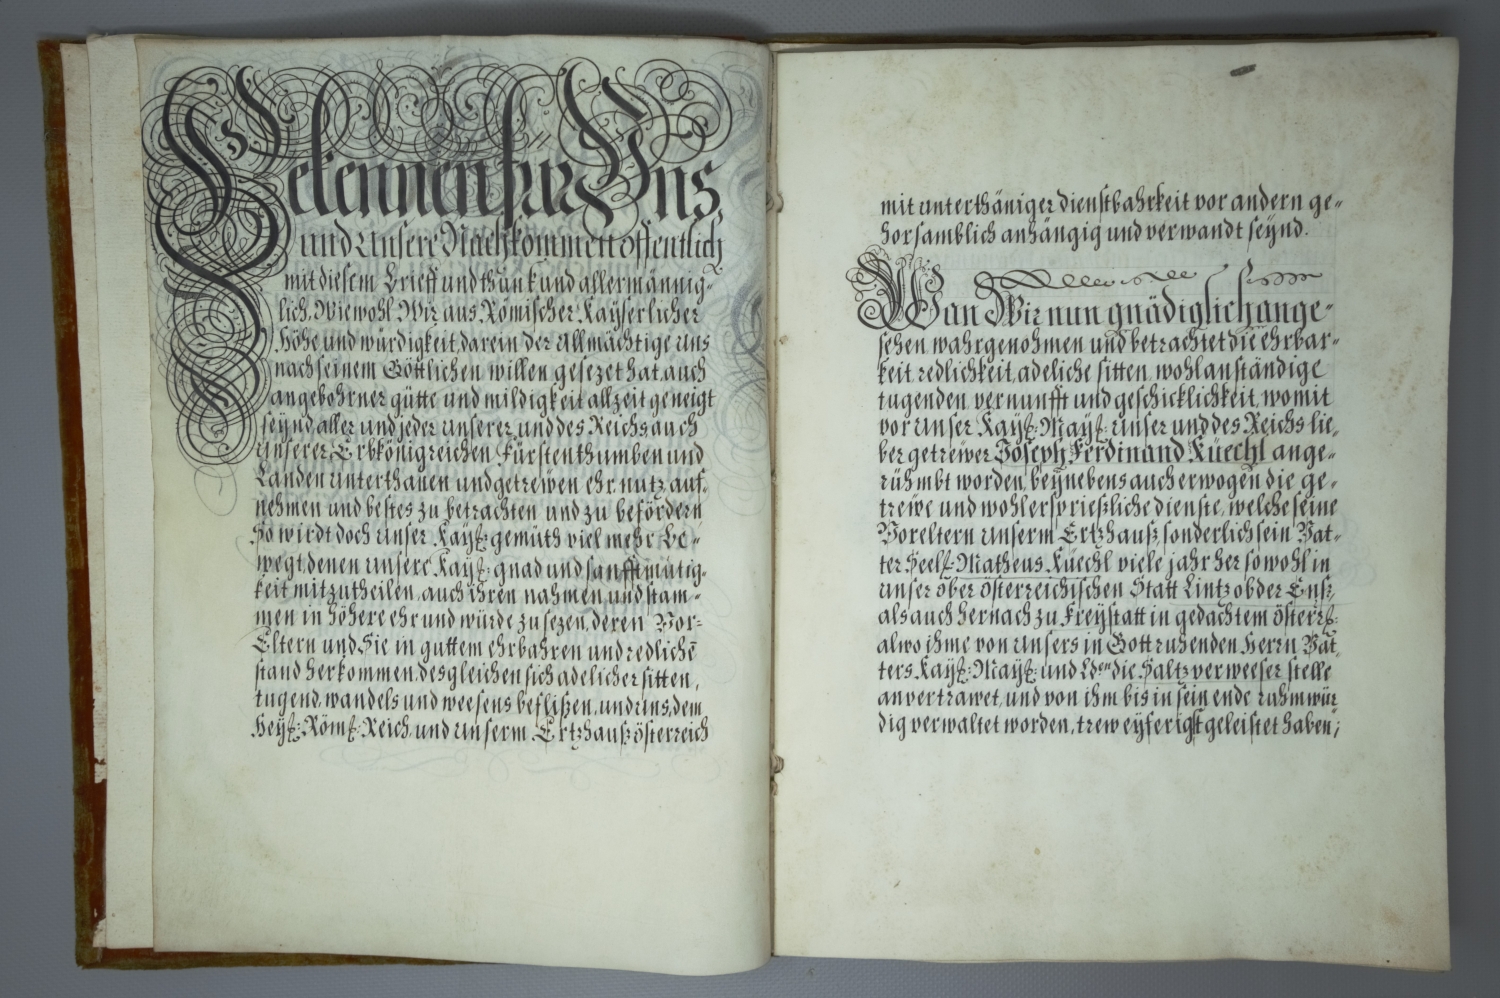 Bekennen für Uns,
und Unsere Nachkommen offentlich
mit diesem Brieff und thun kund allermännig=
lich, Wiewohl Wir aus Römischer Kayserlicher
höhe und würdigkeit darein der Allmächtige Uns
nach seinem Göttlichen willen gesezet hat, auch
angebohrner gütte und mildigkeit allzeit geneigt
seynd aller und jeder Unserer, und des Reichs auch
Unserer Erbkönigreichen Fürstenthumben und
Landen Unterthanen und getrewen ehr, nutz, auf=
nehmen und bestes zu betrachten und zu befördern
So wirdt doch Unser Kayß: gemüth viel mehr be=
wegt, denen Unsere Kayß: gnad und sanfftmütig=
keit mitzutheilen, auch ihren nahmen und stam=
men in höhere ehr und würde zu sezen, deren Vor=
Eltern und Sie in guttem ehrbahren und redlichē
stand herkommen, desgleichen sich adelicher sitten,
tugend, wandels und weesens beflißen, und Uns, dem
Heyß: Römß: Reich, und Unserm Ertzhauß österreich
mit unterthäniger dienstbahrkeit vor andern ge=
horsamblich anhängig und verwandt seynd.
Wan Wir nun gnädiglich ange=
sehen wahrgenohmen und betrachtet die ehrbar=
keit, redlichkeit, adeliche sitten, wohlanständige
tugenden, vernunfft und geschicklichkeit, womit
vor Unser Kayß: Mayß: Unser und des Reichs lie=
ber getrewer Joseph Ferdinand Küechl ange=
rühmbt worden, beynebens auch erwogen die ge=
trewe und wohlersprießliche dienste, welche seine
Voreltern Unserm Ertzhauß, sonderlich sein Vat=
ter Seelß: Matheus Küechl viele jahr her sowohl in
Unser ober österreichischen Statt Lintz ob der Enß,
als auch hernach zu Freystatt in gedachtem österrß:
alwo ihme von Unsers in Gott ruhenden Herrn Vat=
ters Kayß: Mayß: und Lden die Saltzverweeser stelle
anvertrawet, und von ihm bis in sein ende ruhmwür
dig verwaltet worden, trew eyferigst geleistet haben;